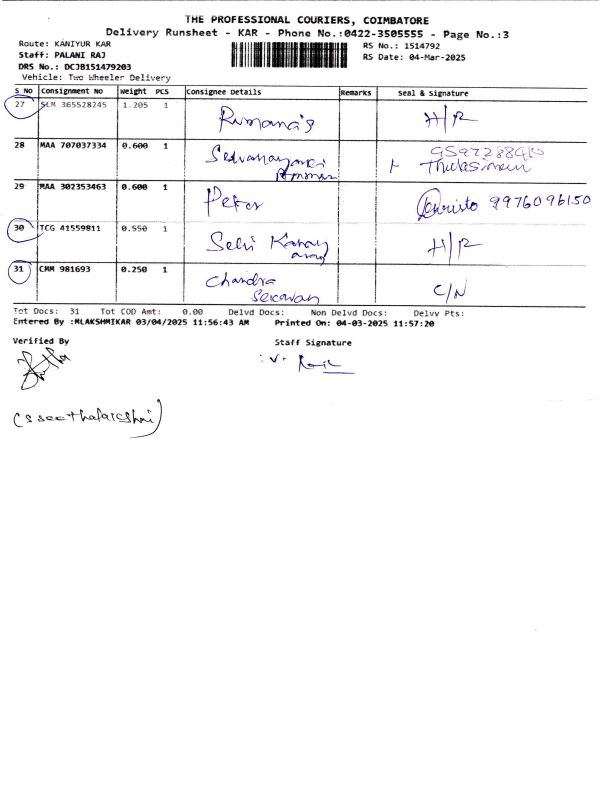 THE PROFESSIONAL COURIERS, COIMBATORE
Delivery Runsheet - KAR - Phone No.:0422-3505555 - Page No.:3
Route: KANIYUR KAR
RS No.: 1514792
Staff: PALANI RAJ
RS Date: 04-Mar-2025
DRS No.: DCJB151479203
Vehicle: Two Wheeler Delivery
S NO Consignment No Weight PCS Consignee Details Remarks Seal & Signature
27 SLM 365528245 1.205 1 H/R
28 MAA 707037334 0.600 1
29 MAA 302353463 0.600 1 Peter Christo 9976096150
30 TCG 41559811 0.550 1 Selvi H/R
31 CMM 981693 0.250 1 Chandra C/N
Sekaran
Tot Docs: 31 Tot COD Amt: 0.00 Delvd Docs: Non Delvd Docs: Delvv Pts:
Entered By :MLAKSHMIKAR 03/04/2025 11:56:43 AM Printed On: 04-03-2025 11:57:20
Verified By Staff Signature